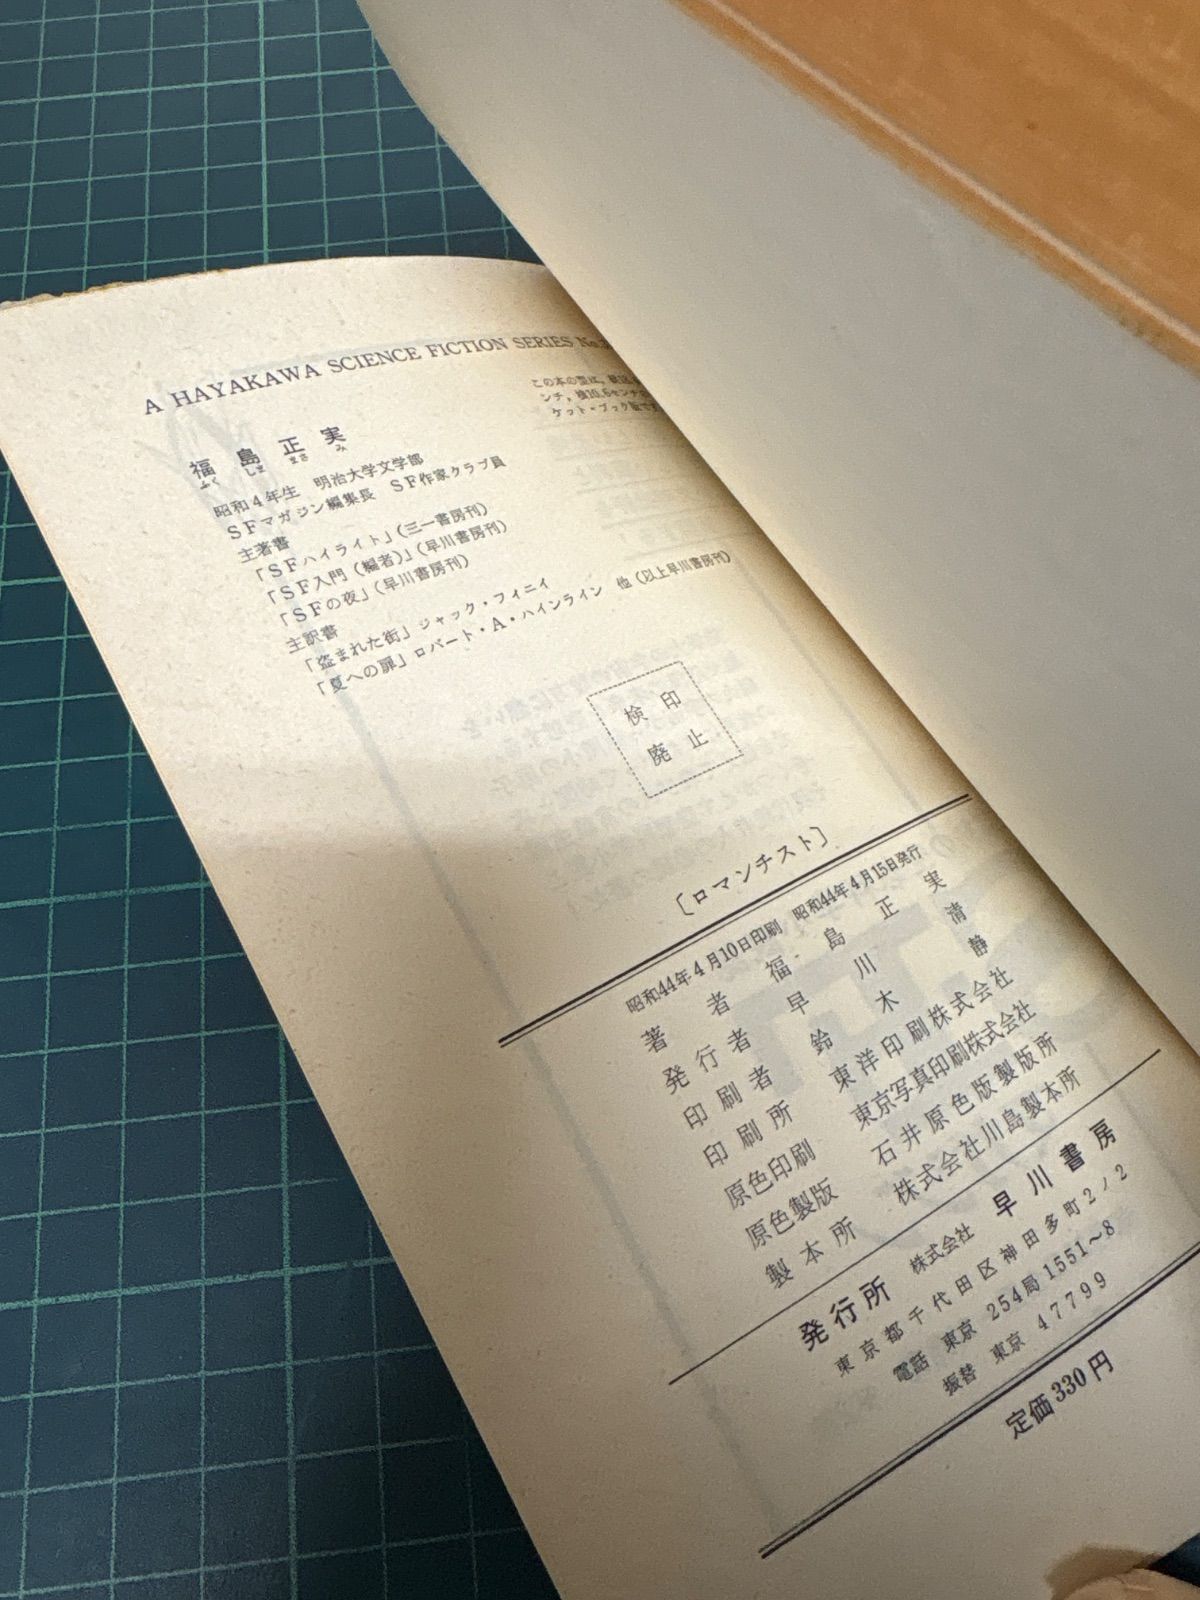 A HAYAKAWA SCIENCE FICTION SERIES No.
この本の型は、
ンチ，横10.6センチ
ケット・ブック版です
福島正実
ふくしままさみ
昭和4年生 明治大学文学部
SFマガジン編集長 SF作家クラブ員
主著書
「SFハイライト」（三一書房刊）
「SF入門（編者）」（早川書房刊）
「SFの夜」（早川書房刊）
主訳書
「盗まれた街」ジャック・フィニイ
「夏への扉」ロバート・A・ハインライン 他（以上早川書房刊）
検印
廃止
〔ロマンチスト〕
昭和44年4月10日印刷 昭和44年4月15日発行
著者 福島正実
発行者 早川清
印刷者 鈴木静
印刷所 東洋印刷株式会社
原色印刷 東京写真印刷株式会社
原色製版 石井原色版製版所
製本所 株式会社川島製本所
発行所 株式会社 早川書房
東京都千代田区神田多町2ノ2
電話 東京 254局1551〜8
振替 東京 47799
定価330円